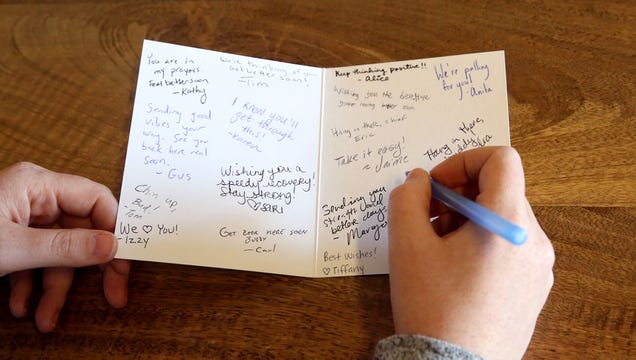 You are in
my prayers
Feel better soon
- Kathy
We're thinking of you
Get better soon!
- Tim
Sending good
vibes your
way. See you
back here real
soon.
- Gus
I know you'll
get through
this!
- Karen
Chin up,
Bud!
- Tom
Wishing you a
speedy recovery!
Stay strong!
We ♡ You!
- Izzy
Get back here soon
buddy
- Carl
Keep thinking positive!!
- Alice
We're pulling
for you!
- Anita
Wishing you the
soon
Hang in there,
Eric
Take it easy!
- Jaime
Hang in there,
Sending you
strength and
better days
-
Best wishes!
♡ Tiffany